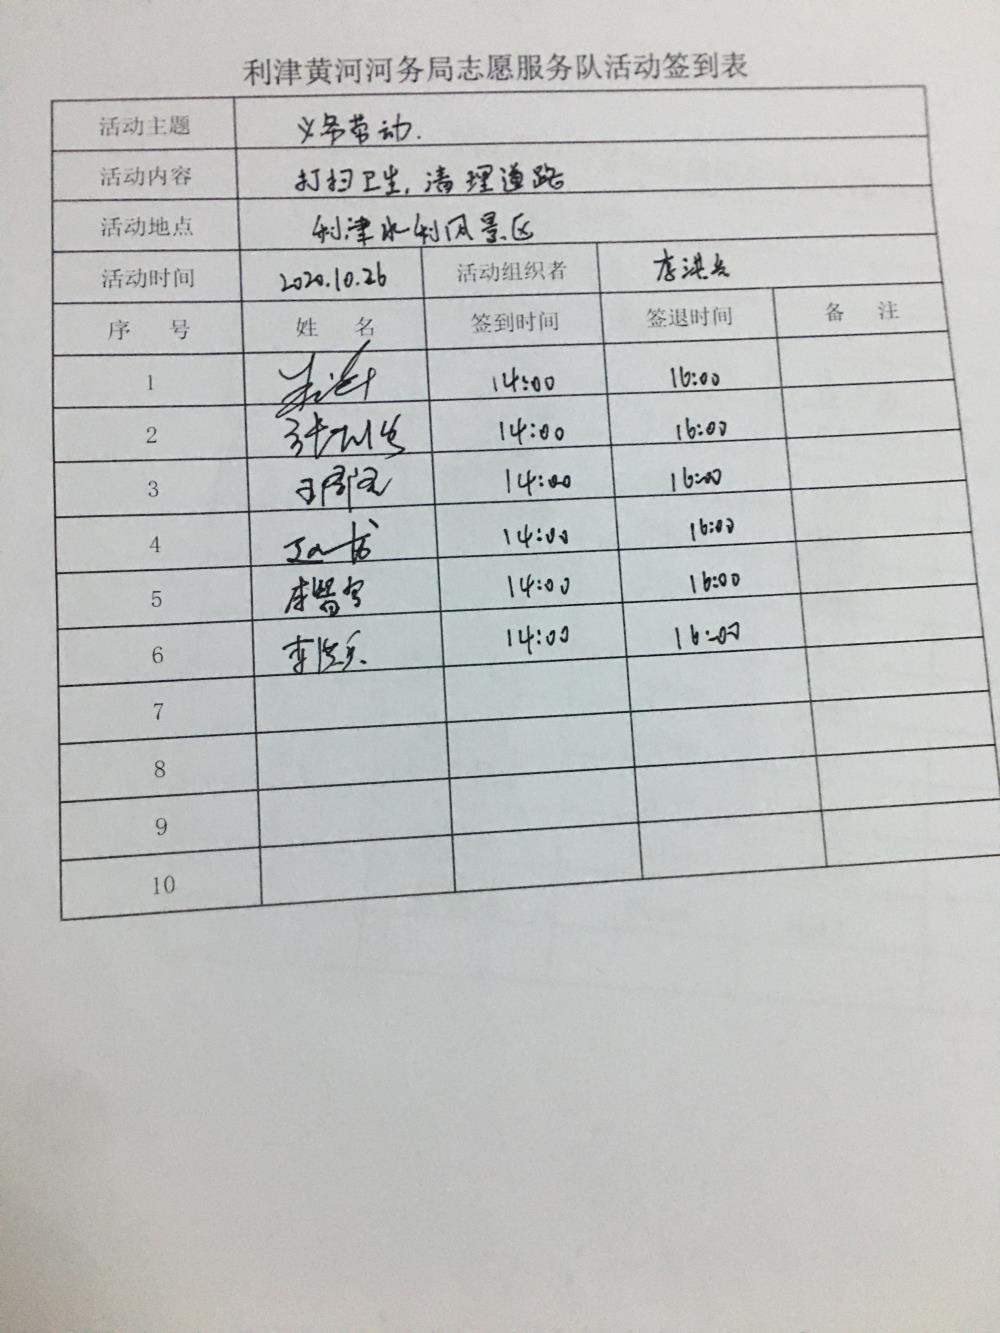 利津黄河河务局志愿服务队活动签到表
活动主题 义务劳动.
活动内容 打扫卫生,清理道路
活动地点 利津水利风景区
活动时间 2020.10.26 活动组织者 李洪兵
序 号 姓 名 签到时间 签退时间 备 注
1 14:00 16:00
2 14:00 16:00
3 14:00 16:00
4 14:00 16:00
5 14:00 16:00
6 李洪兵 14:00 16:00
7
8
9
10